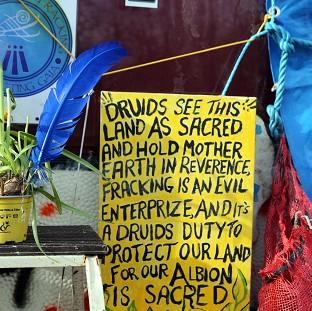 DRUIDS SEE THIS
LAND AS SACRED
AND HOLD MOTHER
EARTH IN REVERENCE,
FRACKING IS AN EVIL
ENTERPRIZE, AND IT'S
A DRUIDS DUTY TO
PROTECT OUR LAND
FOR OUR ALBION
IS SACRED